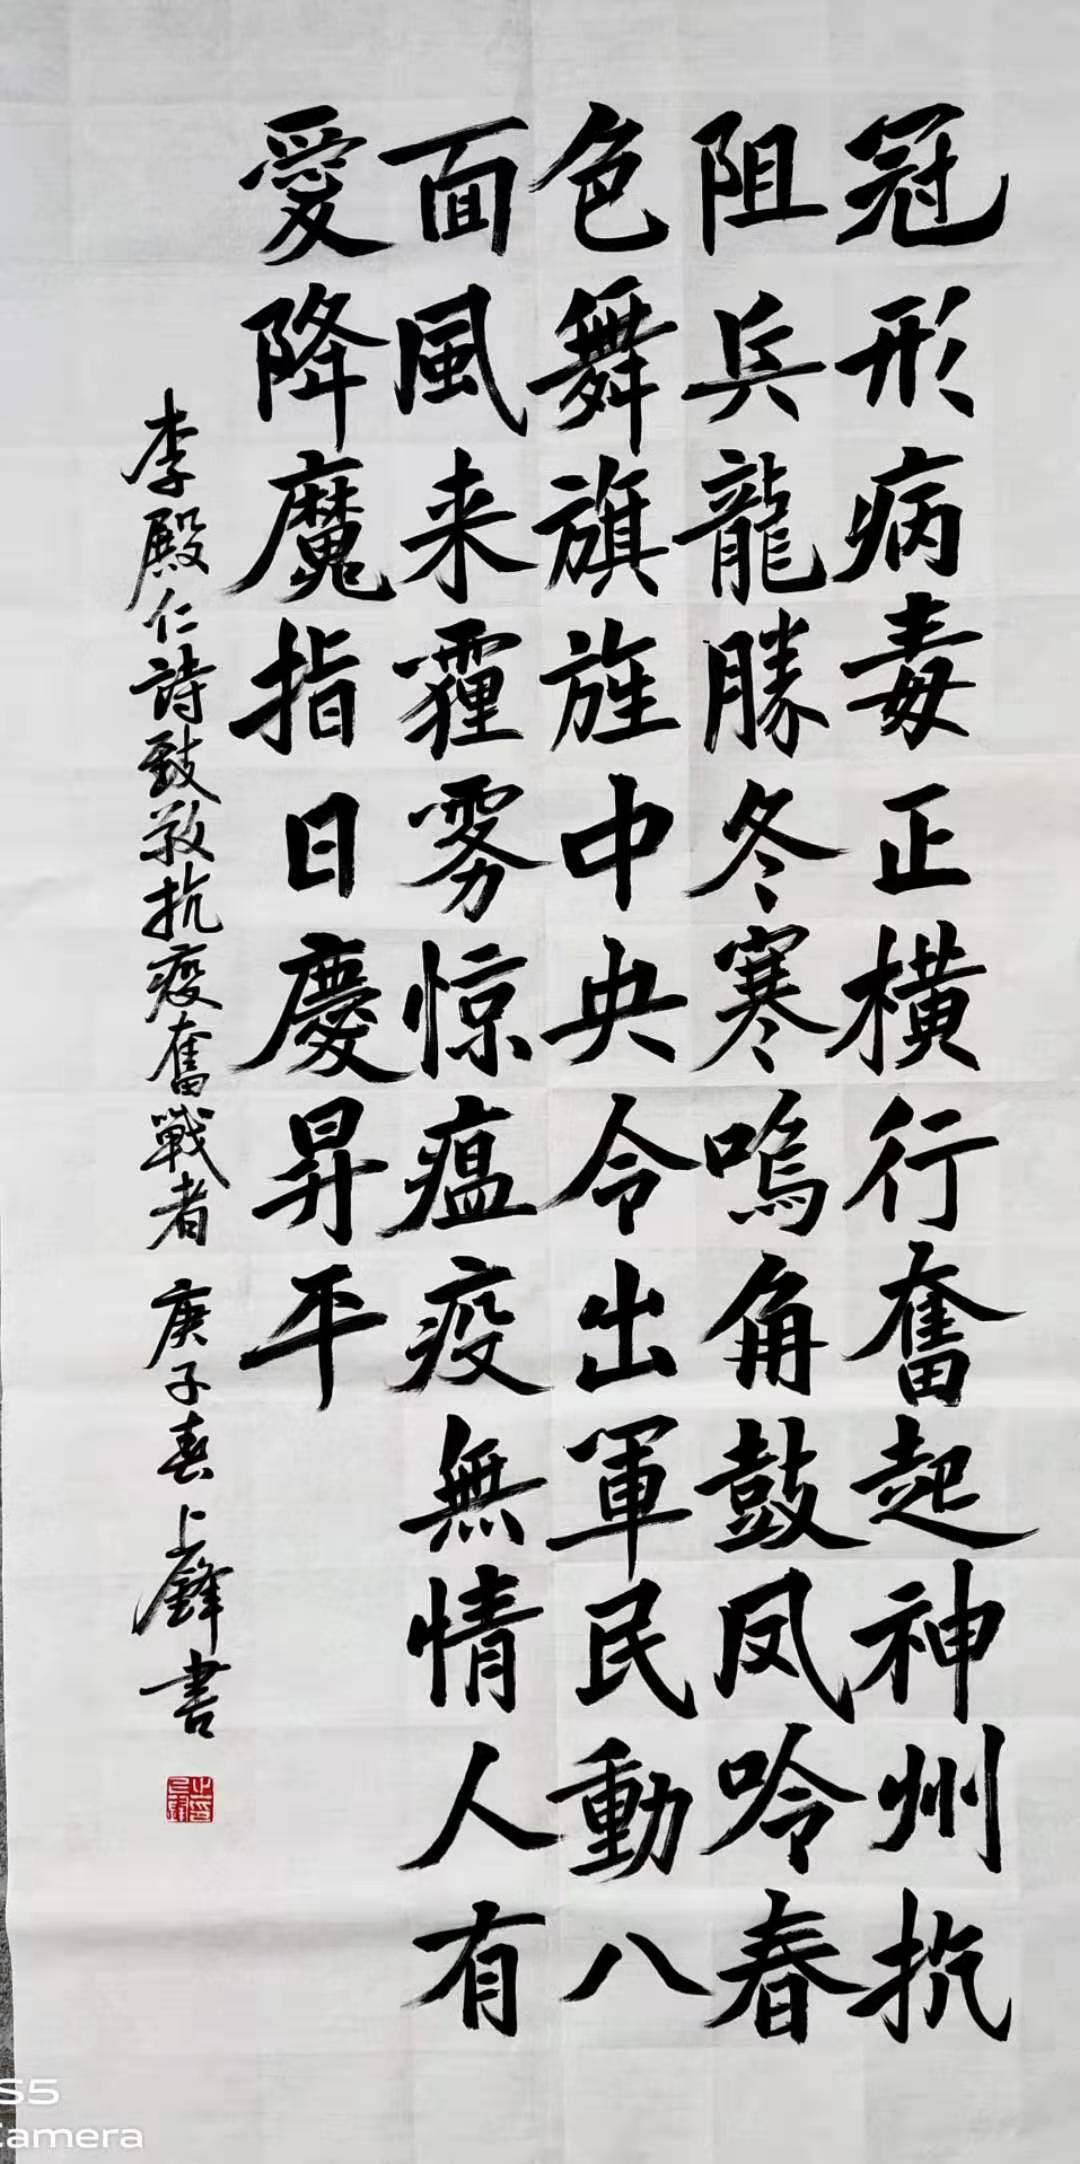 冠形病毒正横行奮起神州抗
阻兵龍勝冬寒嗚角鼓凤吟春
色舞旗旌中央令出軍民動八
面風来霾雾惊瘟疫無情人有
愛降魔指日慶昇平
李殿仁詩致敬抗疫奮戰者 庚子春上鋒書
S5
Camera